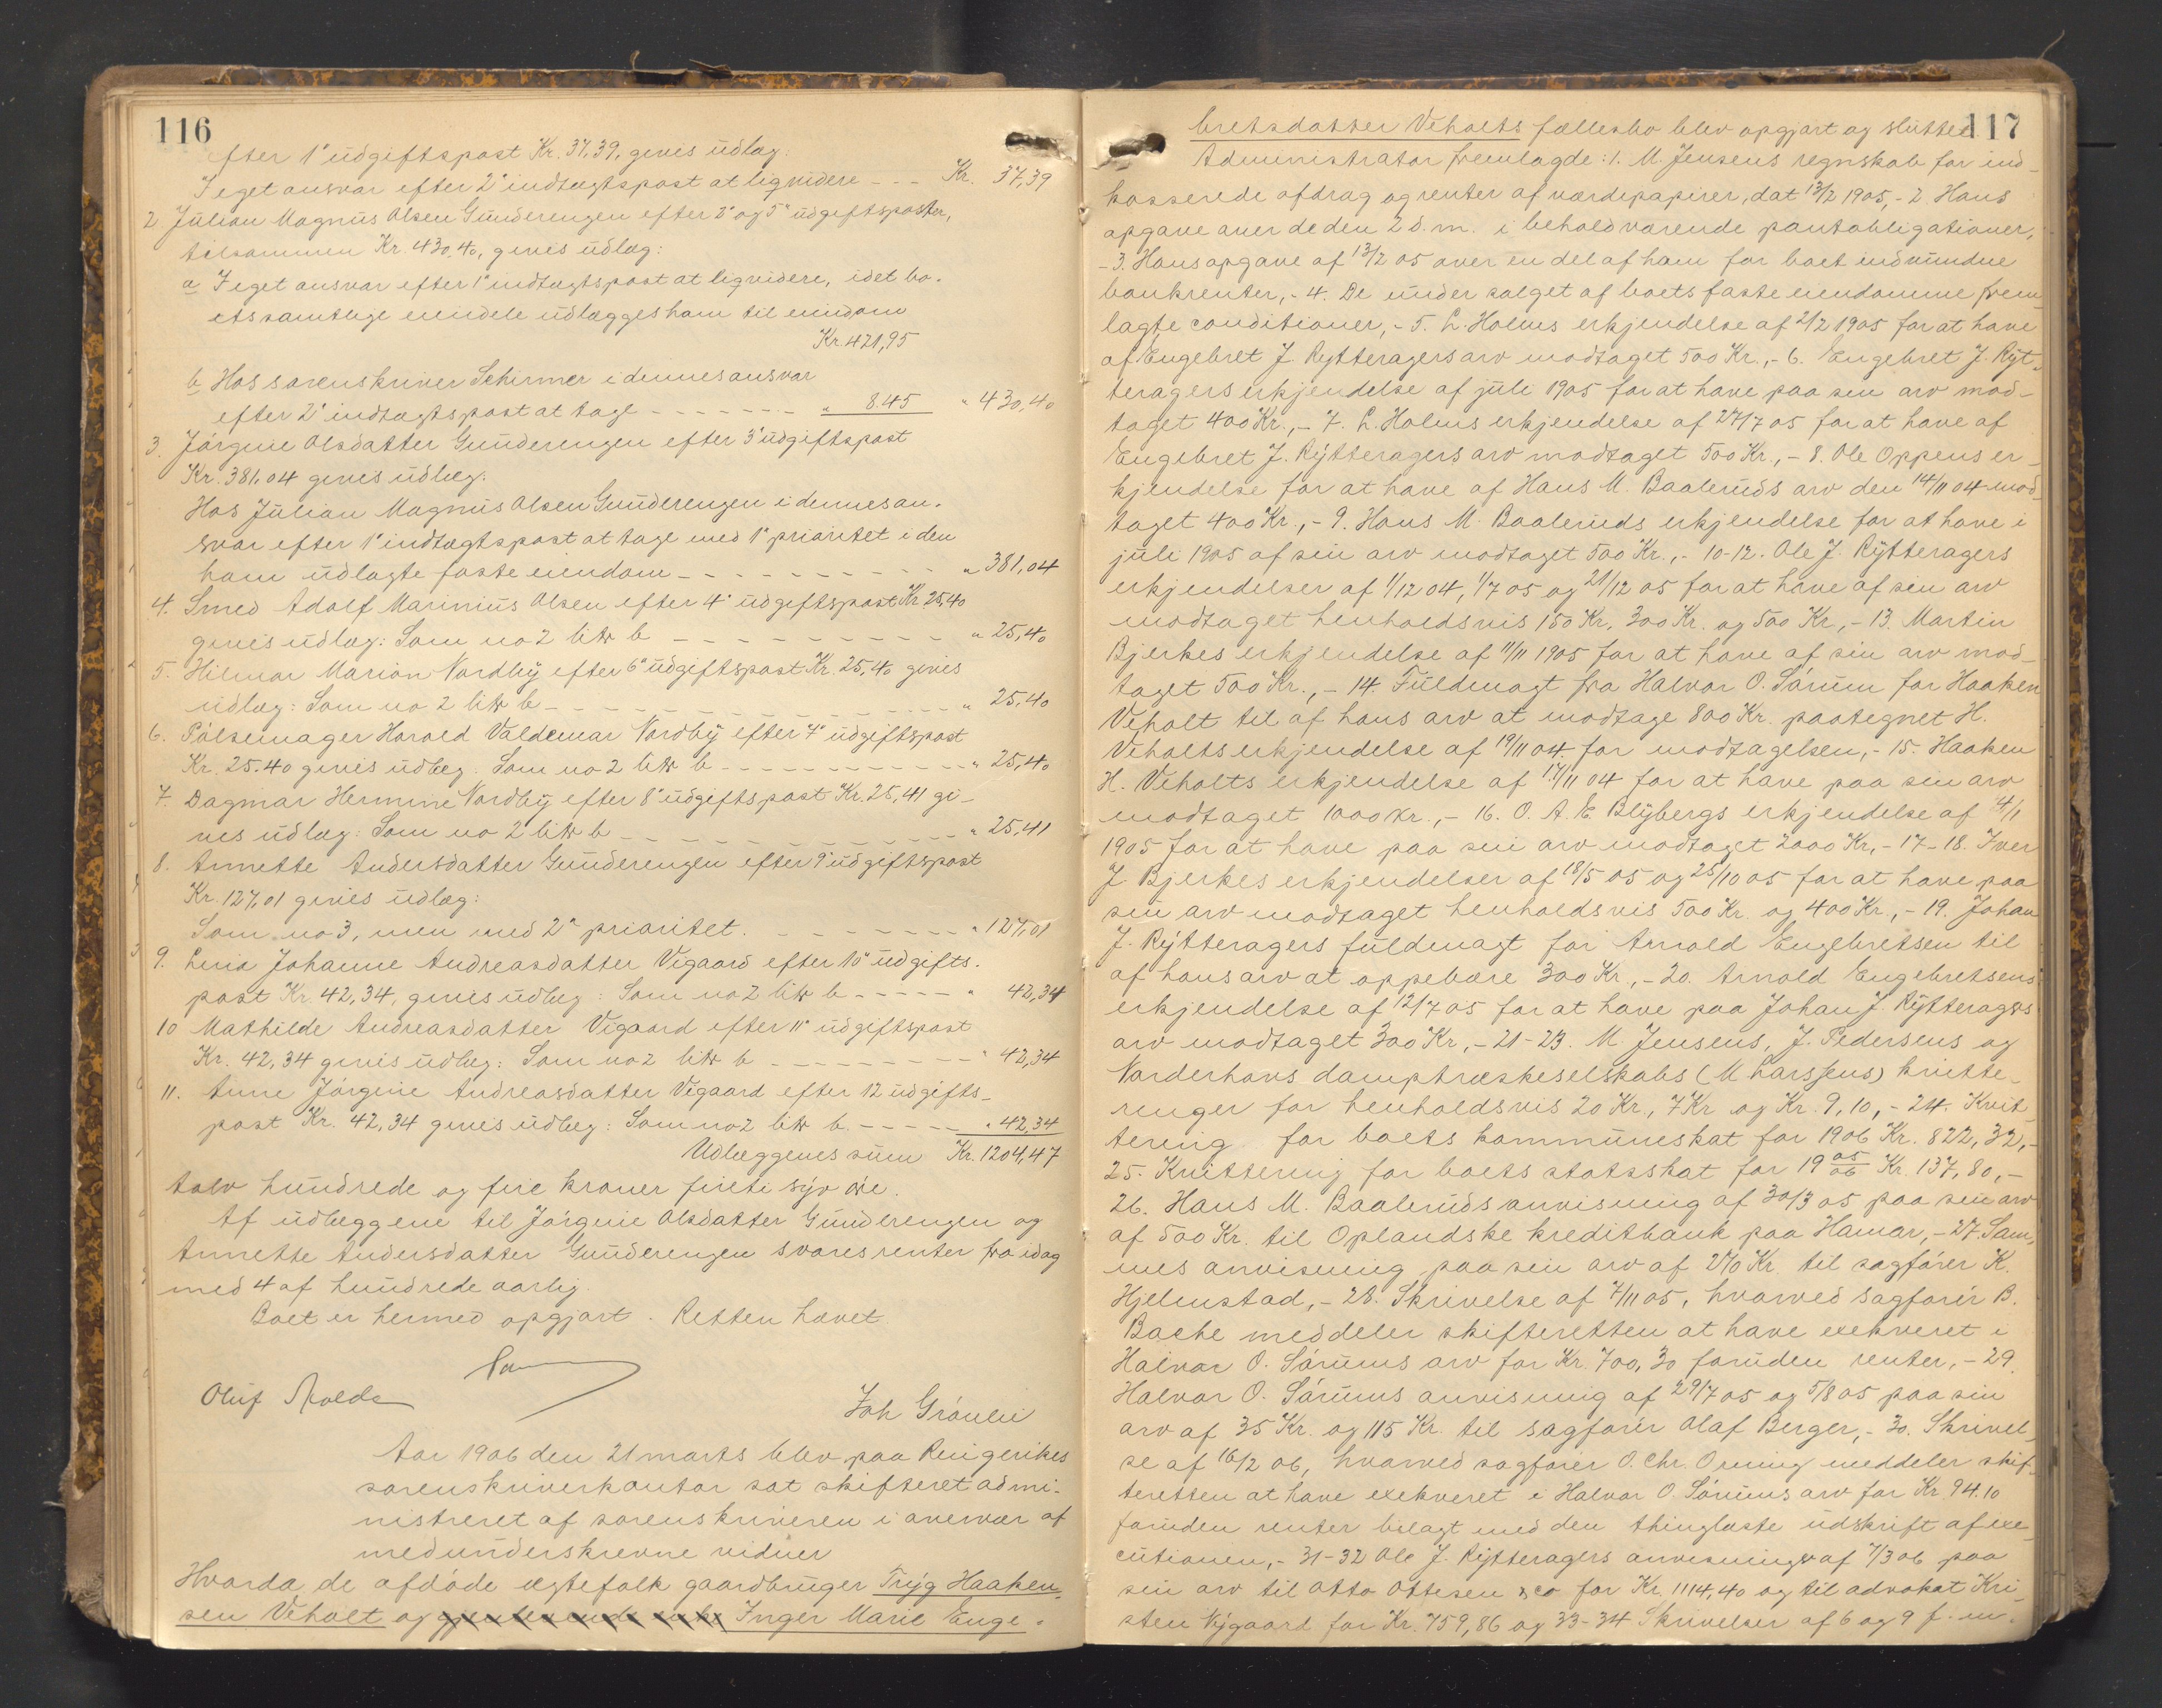 116
efter 1ᵉ udgiftspost Kr. 37,39, gives udlæg.
I eget ansvar efter 2ᵉ indtægtspost at ligvidere - - - Kr. 37,39
2 Julian Magnus Olsen Gunderengen efter 2ᵉ og 5ᵉ udgiftsposter,
tilsammen Kr. 430,40, gives udlæg:
a I eget ansvar efter 1ᵉ indtægtspost at ligvidere, idet bo-
ets samtlige eiendele udlægges ham til eiendom
Kr. 421,95
b Hos sorenskriver Schirmer i dennes ansvar
efter 2ᵉ indtægtspost at tage - - - - - - - " 8.45 " 430,40
3. Jørgine Olsdatter Gunderengen efter 3ᵉ udgiftspost
Kr. 381,04 gives udlæg:
Hos Julian Magnus Olsen Gunderengen i dennes an-
svar efter 1ᵉ indtægtspost at tage med 1ᵉ prioritet i den
ham udlagte faste eiendom - - - - - - - - - - " 381,04
4. Smed Adolf Marinius Olsen efter 4ᵉ udgiftspost Kr. 25,40
gives udlæg: Som no 2 litr b - - - - - - - - - " 25,40
5. Hilmar Marion Nordby efter 6ᵉ udgiftspost Kr. 25,40 gives
udlæg: Som no 2 litr b - - - - - - - - - - - " 25,40
6. Pølsemager Harald Valdemar Nordby efter 7ᵉ udgiftspost
Kr. 25.40 gives udlæg. Som no 2 litr b - - - - - - - - - - " 25,40
7. Dagmar Hermine Nordby efter 8ᵉ udgiftspost Kr. 25,41 gi-
ves udlæg: Som no 2 litr b - - - - - - - - - " 25,41
8. Annette Andersdatter Gunderengen efter 9ᵉ udgiftspost
Kr. 127,01 gives udlæg:
Som no 3, men med 2ᵉⁿ prioritet. - - - - - - - " 127,01
9. Lina Johanne Andreasdatter Vigaard efter 10ᵉ udgifts-
post Kr. 42,34, gives udlæg: Som no 2 litr b - - - - - " 42,34
10 Mathilde Andreasdatter Vigaard efter 11ᵉ udgiftspost
Kr. 42,34 gives udlæg: Som no 2 litr b - - - - - - - - " 42,34
11. Anne Jørgine Andreasdatter Vigaard efter 12 udgifts-
post Kr. 42,34 gives udlæg: Som no 2 litr b. - - - - - " 42,34
Udlæggenes sum Kr. 1204,47
tolv hundrede og fire kroner firti syv øre.
Af udlæggene til Jørgine Olsdatter Gunderengen og
Annette Andersdatter Gunderengen svares renter fra idag
med 4 af hundrede aarlig.
Boet er hermed opgjort. Retten hævet.
Oluf
Joh Grønlie
Aar 1906 den 21 marts blev paa Ringerikes
sorenskriverkontor sat skifteret admi-
nistreret af sorenskriveren i overvær af
medunderskrevne vidner
Hvorda de afdøde ægtefolk gaardbruger Tryg Haaken-
sen Veholt og Inger Marie Enge-
117
bretsdatter Veholts fællesbo blev opgjort og sluttet
Administrator fremlagde: 1. M. Jensens regnskab for ind-
kasserede afdrag og renter af værdipapirer, dat 13/2 1905, - 2. Hans
opgave over de den 2 d. m. i behold værende pantobligationer,
- 3. Hans opgave af 13/2 05 over en del af ham for boet indvundne
bankrenter, - 4. De under salget af boets faste eiendomme frem-
lagte conditioner, - 5. L. Holms erkjendelse af 2/2 1905 for at have
af Engebret J. Rytteragers arv modtaget 500 Kr., - 6. Engebret J. Ryt-
teragers erkjendelse af juli 1905 for at have paa sin arv mod-
taget 400 Kr., - 7. L. Holms erkjendelse af 27/7 05 for at have af
Engebret J. Rytteragers arv modtaget 500 Kr., - 8. Ole Oppens er-
kjendelse for at have af Hans M. Baaleruds arv den 14/11 04 mod-
taget 400 Kr., - 9. Hans M. Baaleruds erkjendelse for at have i
juli 1905 af sin arv modtaget 500 Kr., - 10-12. Ole J. Rytteragers
erkjendelser af 1/12 04, 1/7 05 og 21/12 05 for at have af sin arv
modtaget henholdsvis 150 Kr, 300 Kr. og 500 Kr, - 13. Martin
Bjerkes erkjendelse af 11/11 1905 for at have af sin arv mod-
taget 500 Kr., - 14. Fuldmagt fra Halvor O. Sørum for Haaken
Veholt til af hans arv at modtage 800 Kr. paategnet H.
Veholts erkjendelse af 19/11 04 for modtagelsen, - 15. Haaken
H. Veholts erkjendelse af 17/11 04 for at have paa sin arv
modtaget 1000 kr., - 16. O. A. E. Blybergs erkjendelse af 4/1
1905 for at have paa sin arv modtaget 2000 Kr, - 17-18. Iver
J. Bjerkes erkjendelser af 18/5 05 og 25/10 05 for at have paa
sin arv modtaget henholdsvis 500 Kr. og 400 Kr., - 19. Johan
J. Rytteragers fuldmagt for Arnold Engebretsen til
af hans arv at oppebære 300 Kr., - 20. Arnold Engebretsens
erkjendelse af 12/7 05 for at have paa Johan J. Rytteragers
arv modtaget 300 Kr, - 21-23. M. Jensens, J. Pedersens og
Norderhovs damptræskeselskabs (M Larssens) kvitte-
ringer for henholdsvis 20 Kr., 7 Kr og Kr. 9,10, - 24. Kvit-
tering for boets kommuneskat for 1906 Kr. 822,32, -
25. Kvittering for boets statsskat for 19 05/06 Kr. 137,80, -
26. Hans M. Baaleruds anvisning af 30/3 05 paa sin arv
af 500 Kr. til Oplandske kreditbank paa Hamar, - 27. Sam-
mes anvisning paa sin arv af 270 Kr. til sagfører K.
Hjelmstad, - 28. Skrivelse af 7/11 05, hvorved sagfører B.
Bache meddeler skifteretten at have exekveret i
Halvor O. Sørums arv for Kr. 700,30 foruden renter, - 29.
Halvor O. Sørums anvisning af 29/7 05 og 5/8 05 paa sin
arv af 35 Kr. og 115 Kr. til sagfører Olaf Berger, - 30. Skrivel-
se af 16/2 06, hvorved sagfører O. Chr. Orning meddeler skif-
teretten at have exekveret i Halvor O. Sørums arv for Kr. 94.10
foruden renter bilagt med den thinglæste udskrift af exe-
cutionen, - 31-32 Ole J. Rytteragers anvisninger af 7/3 06 paa
sin arv til Otto Ottesen & co for Kr. 1114,40 og til advokat Kri-
sten Nygaard for Kr. 759,86 og 33-34 Skrivelser af 6 og 9 f. m.